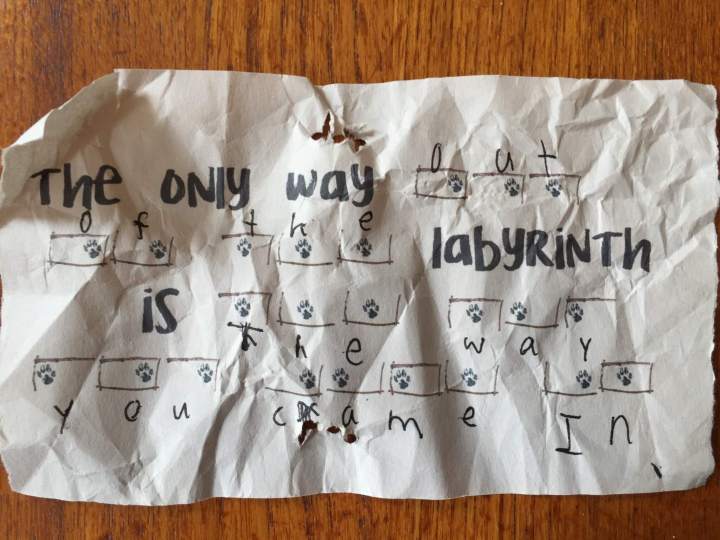 The only way out
of the labyrinth
is the way
you came In